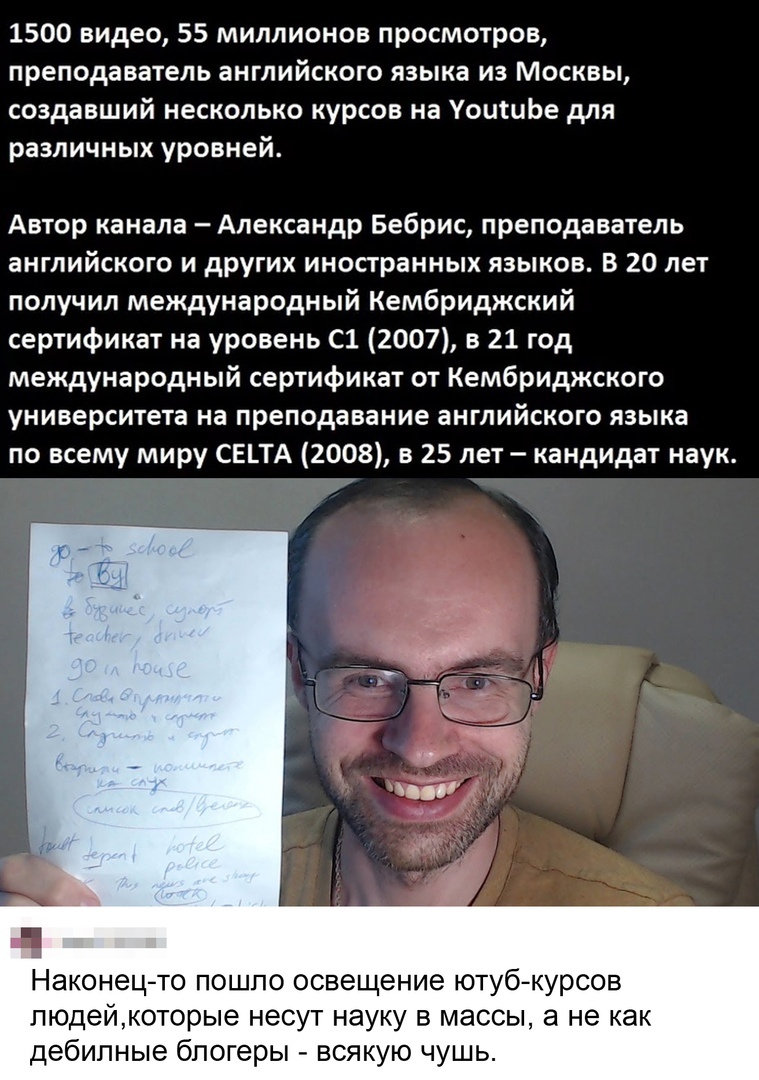 1500 видео, 55 миллионов просмотров,
преподаватель английского языка из Москвы,
создавший несколько курсов на Youtube для
различных уровней.
Автор канала – Александр Бебрис, преподаватель
английского и других иностранных языков. В 20 лет
получил международный Кембриджский
сертификат на уровень C1 (2007), в 21 год
международный сертификат от Кембриджского
университета на преподавание английского языка
по всему миру CELTA (2008), в 25 лет – кандидат наук.
go - to school
to By
teacher, driver
go in house
1. Слова
2. Слушать и
на слух
список слов/
hotel
police
this news are
Наконец-то пошло освещение ютуб-курсов
людей,которые несут науку в массы, а не как
дебилные блогеры - всякую чушь.